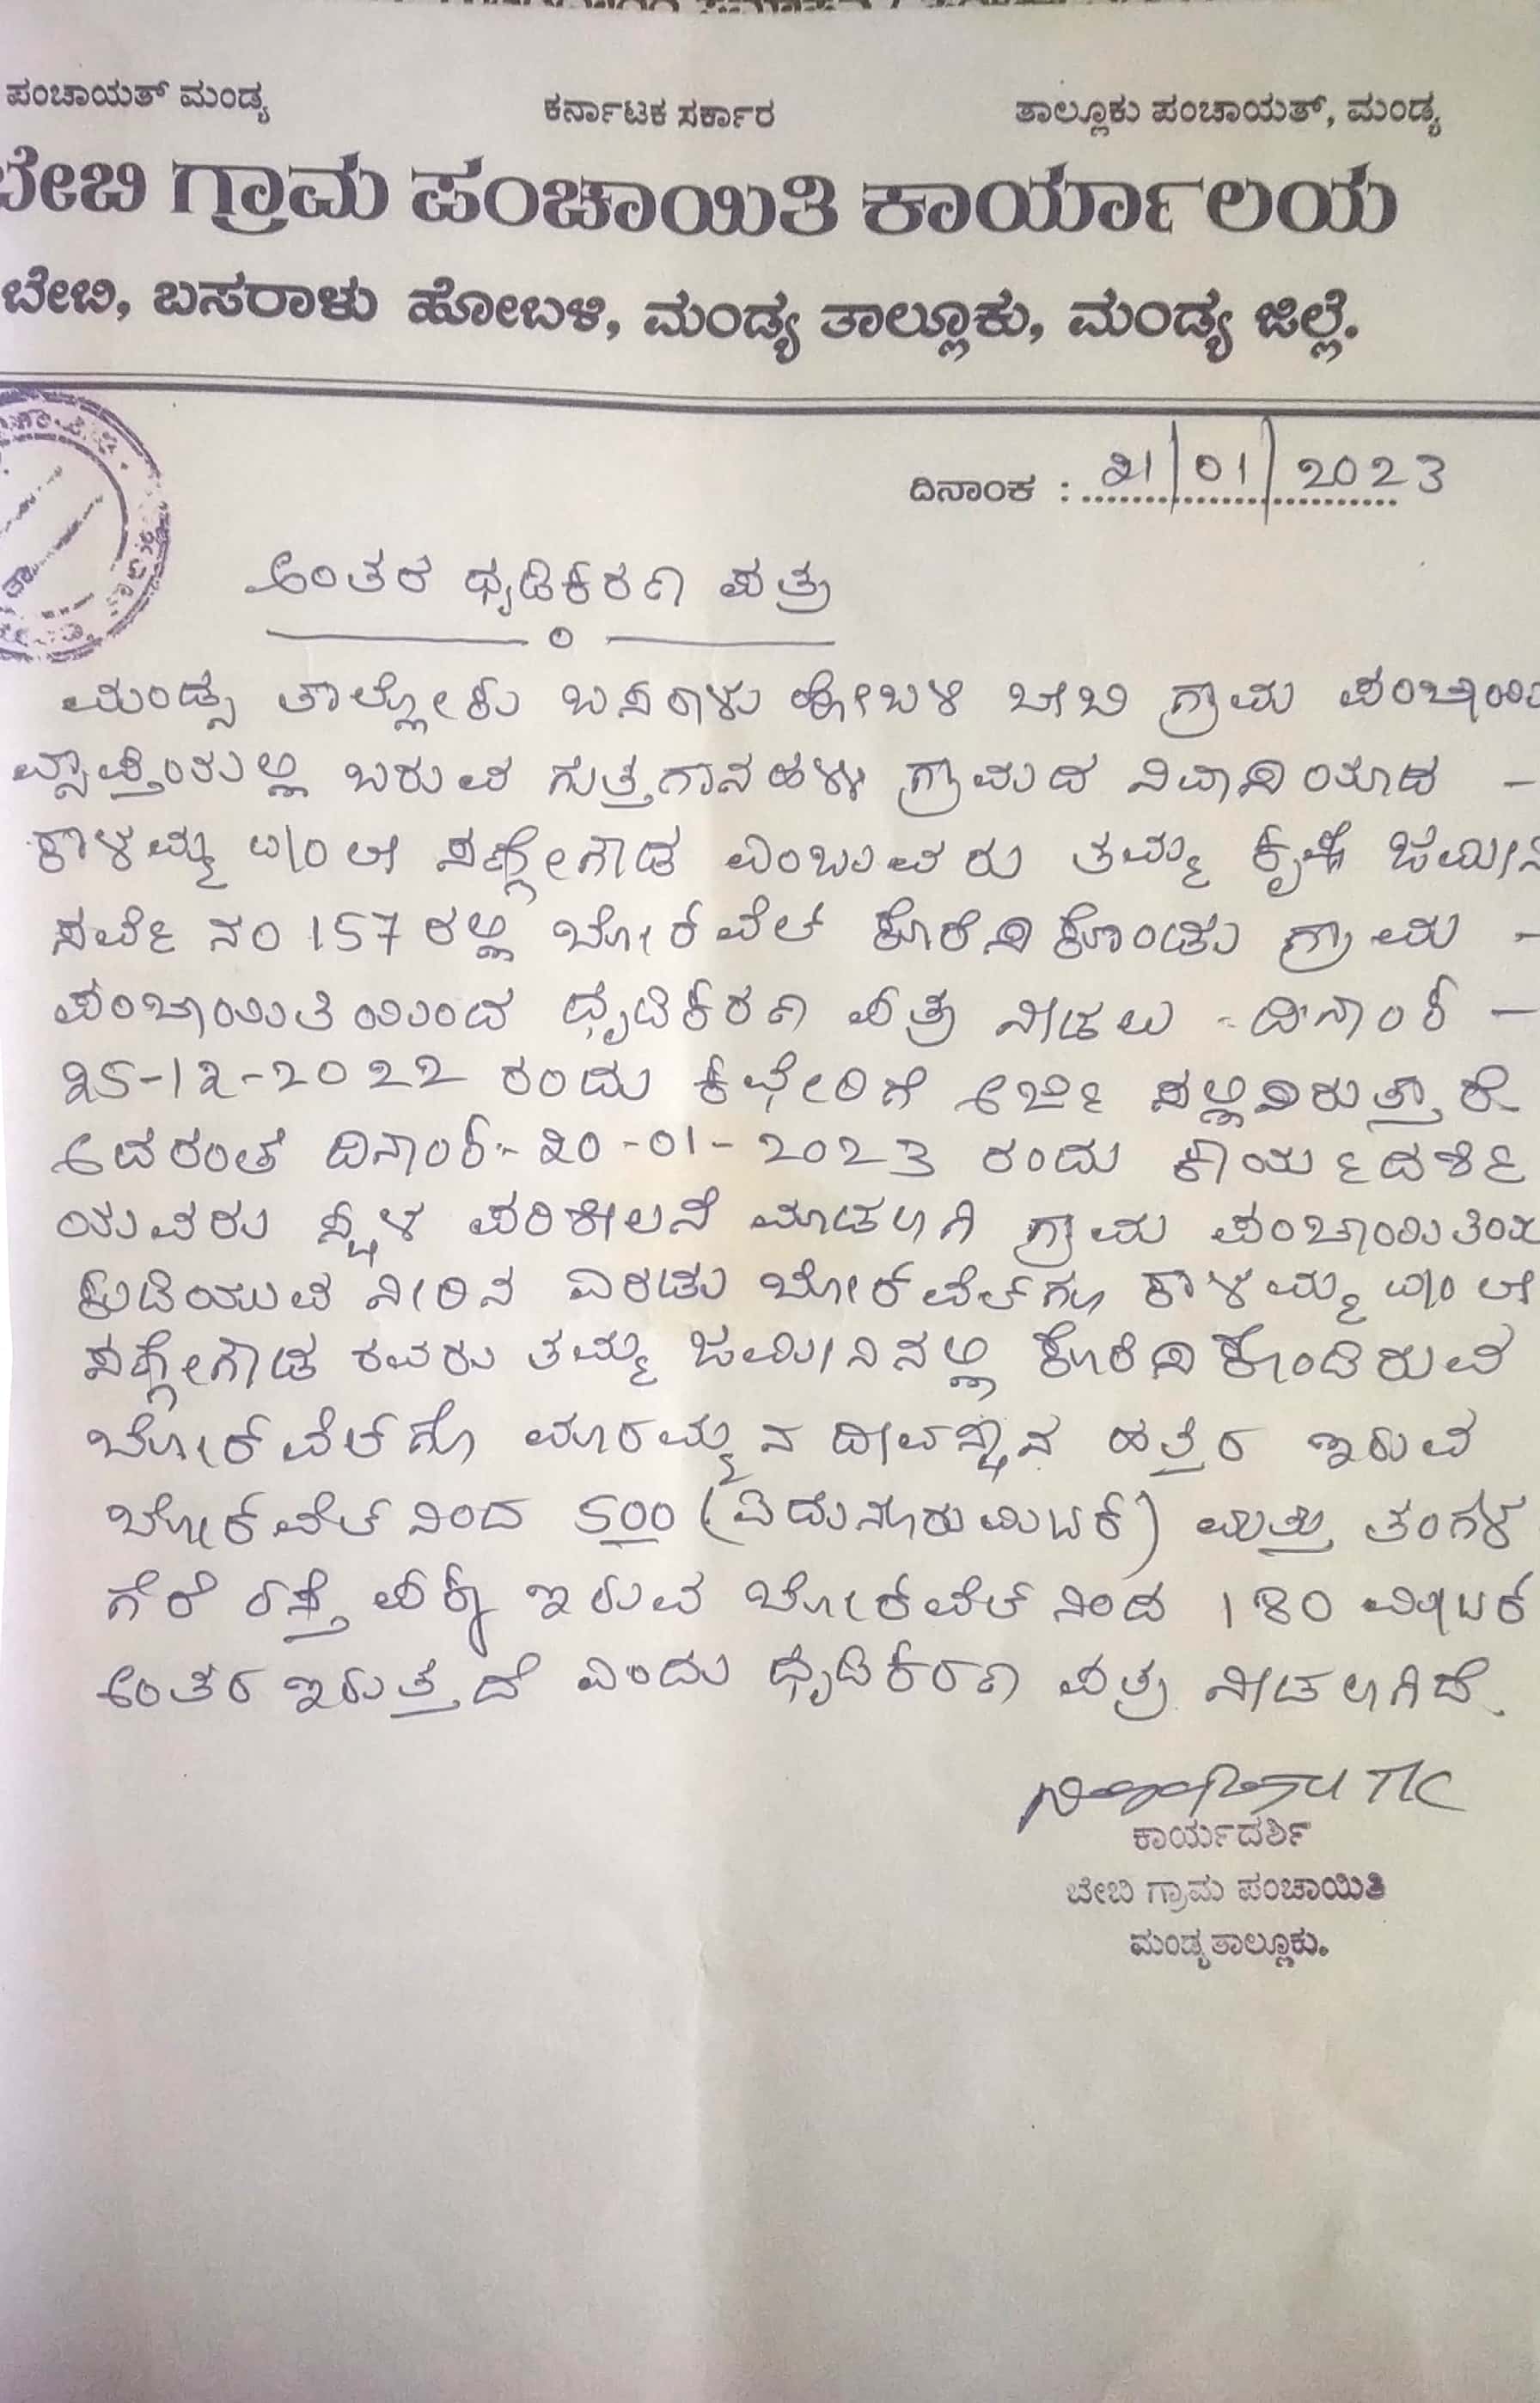 ಪಂಚಾಯತ್ ಮಂಡ್ಯ ಕರ್ನಾಟಕ ಸರ್ಕಾರ ತಾಲ್ಲೂಕು ಪಂಚಾಯತ್, ಮಂಡ್ಯ
ಬೇಬಿ ಗ್ರಾಮ ಪಂಚಾಯಿತಿ ಕಾರ್ಯಾಲಯ
ಬೇಬಿ, ಬಸರಾಳು ಹೋಬಳಿ, ಮಂಡ್ಯ ತಾಲ್ಲೂಕು, ಮಂಡ್ಯ ಜಿಲ್ಲೆ.
ದಿನಾಂಕ : 21/01/2023
ಅಂತರ ಧೃಡಿಕರಣ ಪತ್ರ
ಮಂಡ್ಯ ತಾಲ್ಲೋಕು ಬಸರಾಳು ಹೋಬಳಿ ಬೇಬಿ ಗ್ರಾಮ ಪಂಚಾಯಿ
ವ್ಯಾಪ್ತಿಯಲ್ಲಿ ಬರುವ ಗುತ್ತಗಾನಹಳ್ಳಿ ಗ್ರಾಮದ ನಿವಾಸಿಯಾದ -
ಕಾಳಮ್ಮ ಏ/೦ ಲೇ ಸಣ್ಣೇಗೌಡ ಎಂಬುವರು ತಮ್ಮ ಕೃಷಿ ಜಮೀನ
ಸರ್ವೆ ನಂ 157 ರಲ್ಲಿ ಬೋರ್ ವೆಲ್ ಕೊರೆಸಿಕೊಂಡು ಗ್ರಾಮ -
ಪಂಚಾಯಿತಿಯಿಂದ ಧೃಡಿಕರಣ ಪತ್ರ ನೀಡಲು - ದಿನಾಂಕ -
25-12-2022 ರಂದು ಕಛೇರಿಗೆ ಅರ್ಜಿ ಸಲ್ಲಿಸಿರುತ್ತಾರೆ
ಅದರಂತೆ ದಿನಾಂಕ:- 20-01-2023 ರಂದು ಕಾರ್ಯದರ್ಶಿ
ಯವರು ಸ್ಥಳ ಪರಿಶೀಲನೆ ಮಾಡಲಾಗಿ ಗ್ರಾಮ ಪಂಚಾಯಿತಿಯ
ಕುಡಿಯುವ ನೀರಿನ ಎರಡು ಬೋರ್ ವೆಲ್ ಗೂ ಕಾಳಮ್ಮ ಏ/೦ ಲೇ
ಸಣ್ಣೇಗೌಡ ರವರು ತಮ್ಮ ಜಮೀನಿನಲ್ಲಿ ಕೊರೆಸಿಕೊಂಡಿರುವ
ಬೋರ್ ವೆಲ್ ಗೂ ಮಾರಮ್ಮನ ದೇವಸ್ಥಾನ ಹತ್ತಿರ ಇರುವ
ಬೋರ್ ವೆಲ್ ನಿಂದ 500 (ಐದುನೂರುಮಿಟರ್) ಮತ್ತು ತಂಗಳ
ಗೆರೆ ರಸ್ತೆ ಪಕ್ಕ ಇರುವ ಬೋರ್ ವೆಲ್ ನಿಂದ 180 ಮೀಟರ್
ಅಂತರ ಇರುತ್ತದೆ ಎಂದು ಧೃಡಿಕರಣ ಪತ್ರ ನೀಡಲಾಗಿದೆ.
ಕಾರ್ಯದರ್ಶಿ
ಬೇಬಿ ಗ್ರಾಮ ಪಂಚಾಯಿತಿ
ಮಂಡ್ಯ ತಾಲ್ಲೂಕು.